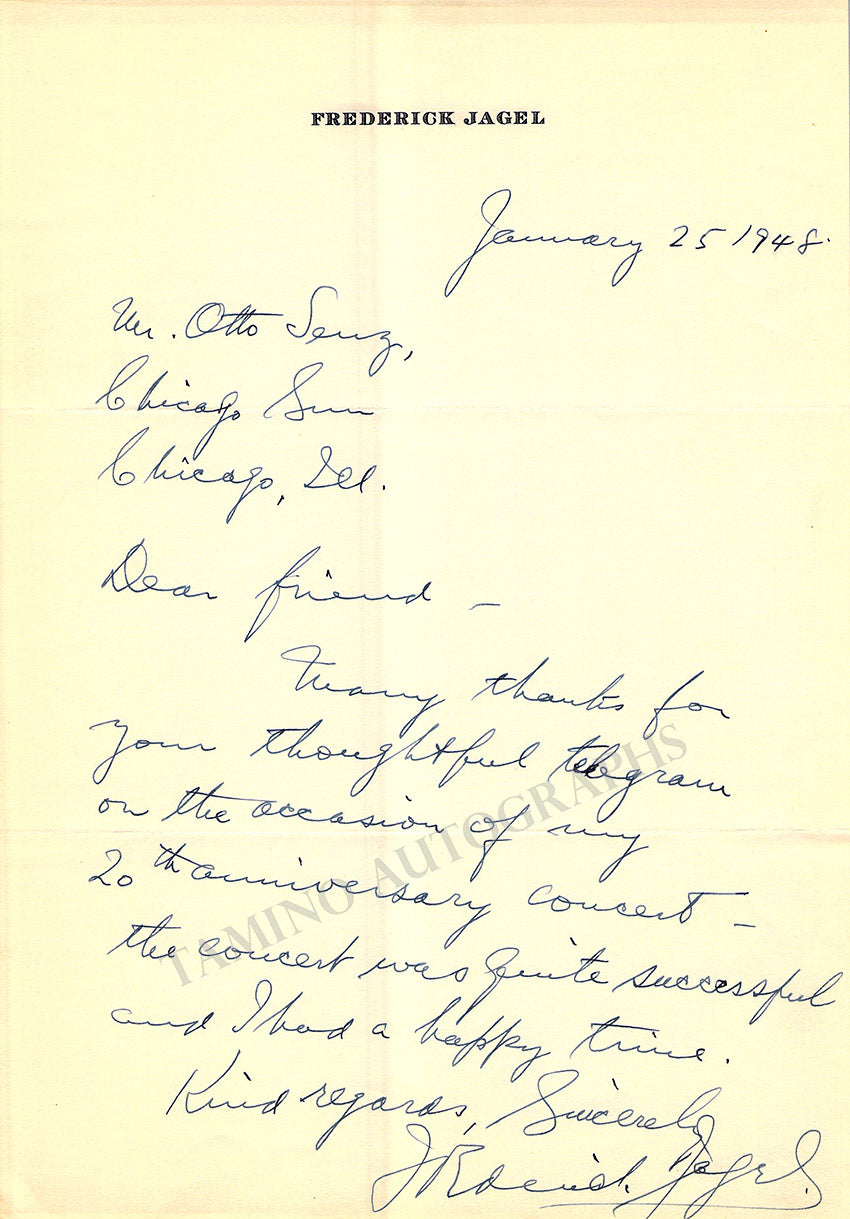 FREDERICK JAGEL
January 25 1948.
Mr. Otto Senz,
Chicago Sun
Chicago, Ill.
Dear friend –
Many thanks for
your thoughtful telegram
on the occasion of my
20th anniversary concert –
the concert was quite successful
and I had a happy time.
Kind regards, Sincerely
Frederick Jagel.
TAMINO AUTOGRAPHS